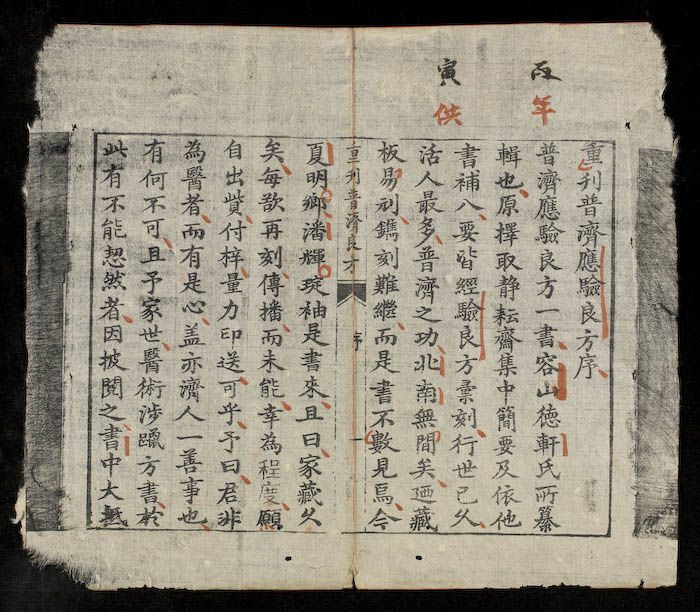 丙年
寅供
重刊普濟應驗良方序
普濟應驗良方一書容山德軒氏所纂
輯也原擇取静耘齋集中簡要及依他
書補八要皆經驗良方彙刻行世已久
活人最多普濟之功北南無間矣迺藏
板易刓鐫刻難繼而是書不數見焉今
重刊普濟良方
序
一
夏明鄉潘輝琔袖是書來且曰家藏久
矣每欲再刻傳播而未能幸為程度願
自出貲付梓量力印送可乎予曰君非
為醫者而有是心盖亦濟人一善事也
有何不可且予家世醫術涉躐方書於
此有不能恝然者因披閱之書中大概